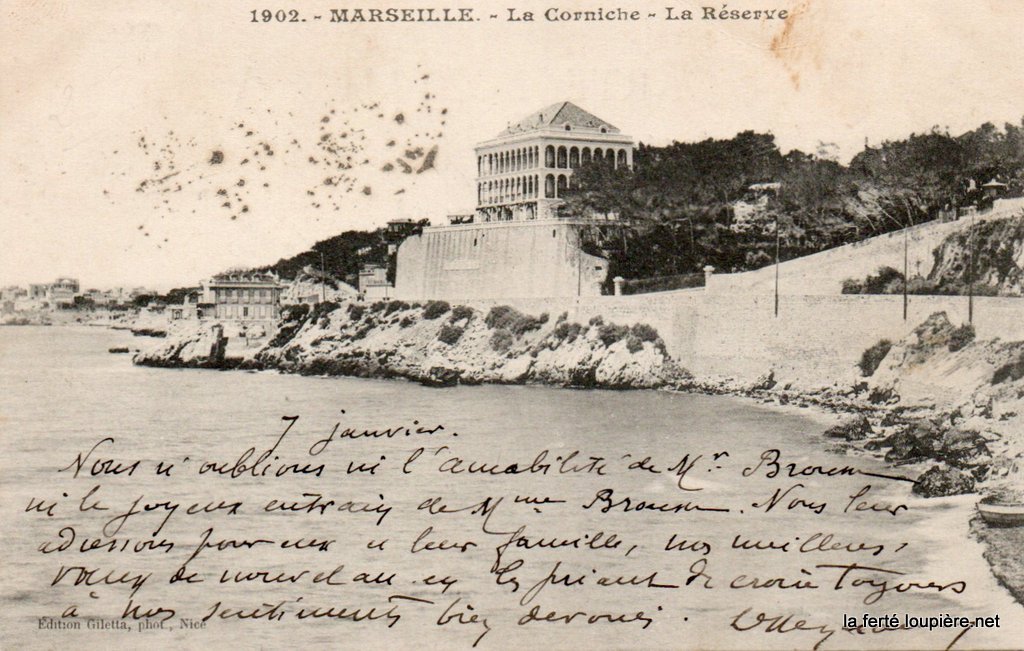 1902. - MARSEILLE. - La Corniche - La Réserve
7 janvier.
Nous n'oublions ni l'amabilité de Mr
ni le joyeux entrain de Mme. Nous leur
adressons pour eux et leur famille, nos meilleurs
voeux de nouvel an en les priant de croire toujours
à nos sentiments bien dévoués.
Edition Giletta, phot, Nice
la ferté loupière-net